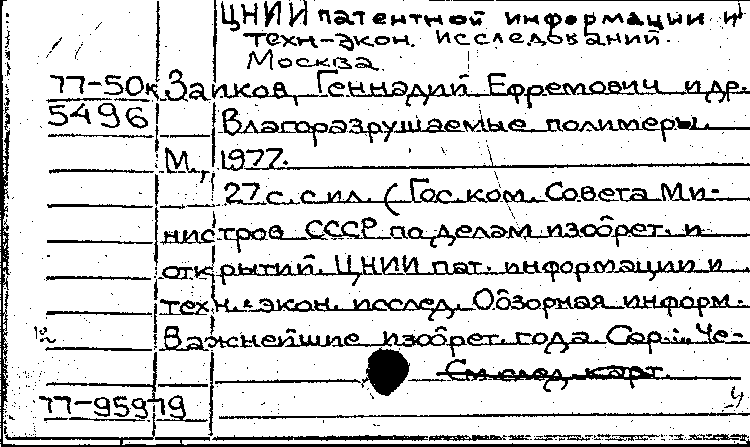 ЦНИИ патентной информации и
техн-экон. исследований.
Москва
77-50к Заиков, Геннадий Ефремович и др.
5496 Влагоразрушаемые полимеры.
М., 1977.
27 с. с ил. (Гос. ком. Совета Ми-
нистров СССР по делам изобрет. и
открытий. ЦНИИ пат. информации и
техн.-экон. исслед. Обзорная информ.
Важнейшие изобрет. года. Сер.: „Че-
См след. карт.
77-95979